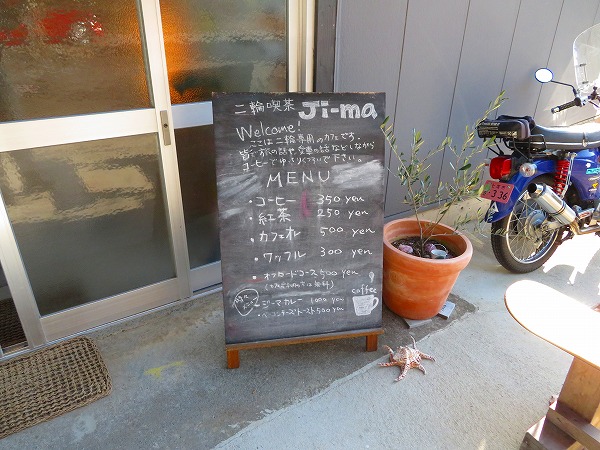 二輪喫茶 Ji-ma
Welcome!
ここは二輪専用のカフェです。
皆で旅の話や 愛車の話などしながら
コーヒーでゆっくりくつろいで下さい。
MENU
・コーヒー 350 yen
・紅茶 250 yen
・カフェオレ 500 yen
・ワッフル 300 yen
・オフロードコース 500 yen
coffee
ジーマカレー 1000 yen
・ベーコンチーズトースト 500 yen
3 36